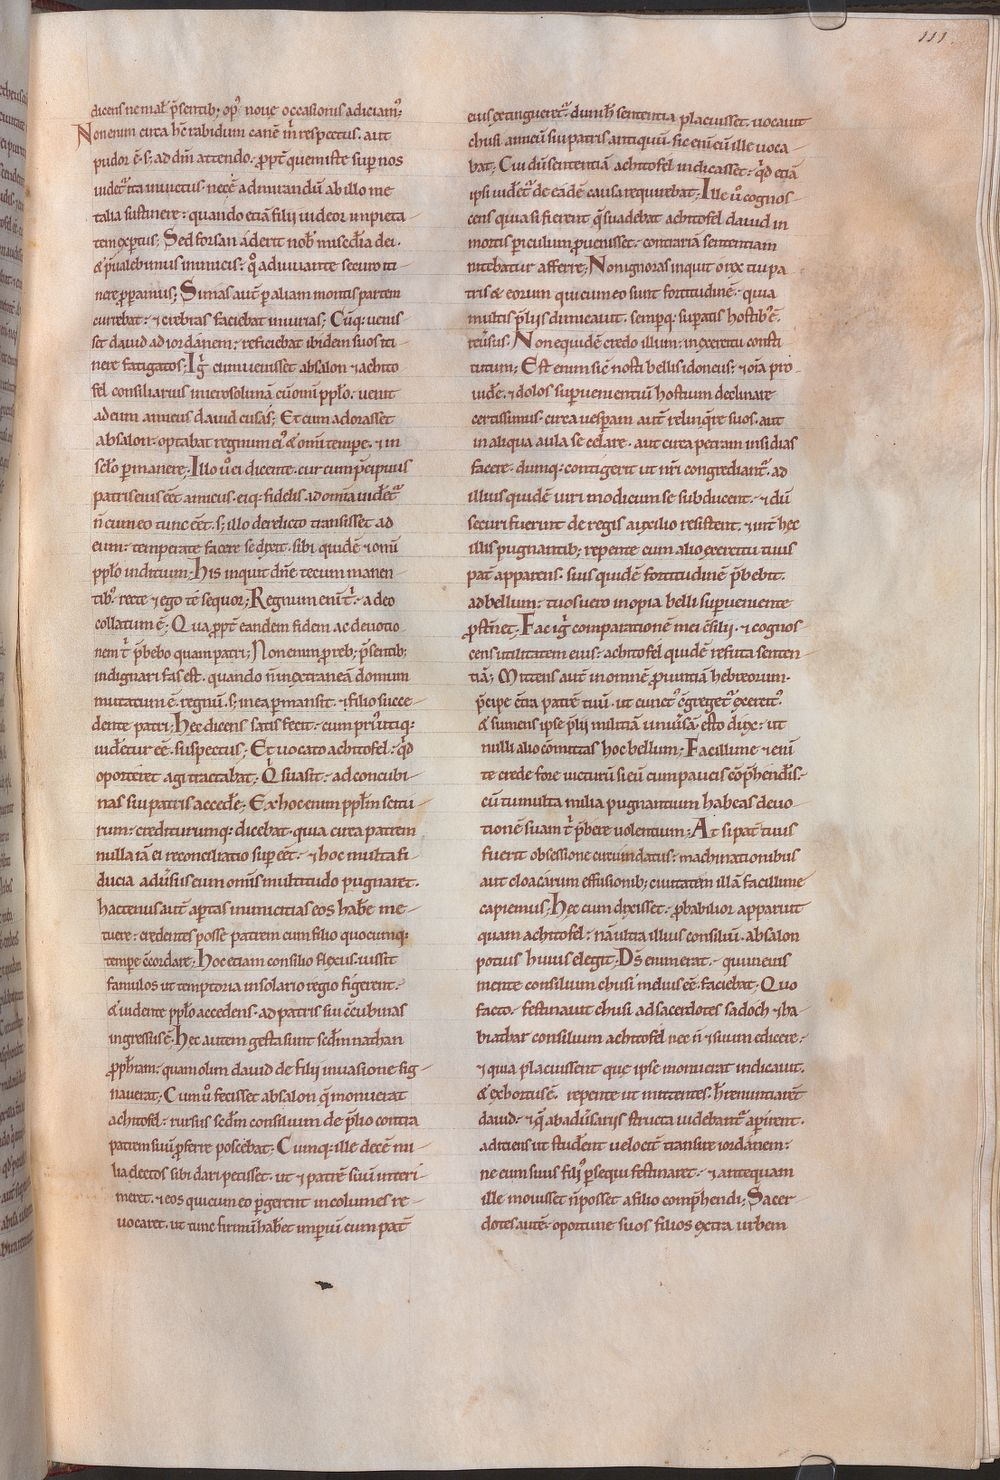 111
dicens ne mal̃ p̃sentib; op' noue occasionis adiciam'.
Non enim circa hc̃ rabidum canẽ m̃ respectus. aut
pudor ẽ. s; ad dm̃ attendo. ꝓpt̃ quem iste sup nos
uidet̃ ita inuectus. necẽ admirandũ ab illo me
talia sustinere: quando etiã filii uideor impieta-
tem exptus; Sed forsan áderit nob̃ miscd̃ia dei.
& p̃ualebimus inimicis: q̊ adiuuante securo iti-
nere ꝓpamus; Simas aut̃ p aliam montis partem
currebat: & crebras faciebat iniurias; Cũq: uenis-
set dauid ad iordánem: reficiebat ibidem suos iti-
nere fatigatos; Ig̃ cum uenisset absalon & achito
fel consiliarius in ierosolimã cũ omi pplo. uenit
ad eum amicus dauid cusás; Et cum adorasset
absalon. optabat regnum ei' & omi tempe. & in
sc̃lo pmanere; Illo ũ ei dicente. cur cum p̃cipuus
patris eius eẽt amicus. eiq: fidelis. ad omia uidet̃
ñ cum eo tunc eẽt. s; illo derelicto transisset ad
eum: temperate facere se dixit. sibi quidẽ & omi
pplo inditium; His inquit dñe tecum manen-
tib'. recte & ego te sequor; Regnum eni t̃. a deo
collatum ẽ; Qua ꝓpt̃ eandem fidem ac deuotio
nem t̃ p̃bebo quam patri; Non enim ꝓ reb; p̃sentib;
indignari fas est. quando ñ in extraneã domum
mutatum ẽ regnũ. s; in ea pmansit. & filio succe-
dente patri; Hec dicens satis fecit. cum pri' utiq:
uidet̃ur eẽ suspectus; Et uocato achitofel: q̃d
oporteret agi tractabat; Q̃ suasit. ad concubi-
nas sui patris acced̃e; Ex hoc enim pplm scitu-
rum: crediturumq: dicebat. quia circa patrem
nulla iã ei reconciliatio sup eẽt. & hoc multa fi-
ducia adũsus eum omis multitudo pugnaret.
hactenus aut̃ aptas inimicitias eos hab̃e me-
tuere: credentes posse patrem cum filio quocumq:
tempe c̃cordare; Hoc etiam consilio flexus. iussit
famulos ut temptoria in solario regio figerent.
& uidente pplo accedens. ad patris sui c̃cubinas
ingressus ẽ; Hec autem gesta sunt scd̃m nathan
ꝓph̃iam: quam olim dauid de filii inuasione sig-
nauerat; Cum ũ fecisset absalon q̃ monuerat
achitofel: rursus scdm consilium de p̃lio contra
patrem suũ ꝓferre poscebat; Cumq: ille decẽ mi-
lia electos sibi dari petisset. ut & patrẽ suũ interi-
meret. & eos qui cum eo pgerent incolumes re-
uocaret. ut tunc firmũ hab̃et impiũ cum pat̃
eius extingueret̃. dum h̃ sententia placuisset. uocauit
chusi amicũ sui patris antiquũ. sic eni eũ ille uoca-
bat; Cui dũ sententiã achitofel indicasset. q̃d etiã
ipsi uidet̃ de eádẽ causa requirebat; Ille ũ cognos-
cens quia si fierent q̃ suadebat achitofel dauid in
mortis piculum ꝓuenisset. contrariã sententiam
nitebatur afferre; Non ignoras inquit ó rex tui pa
tris & eorum qui cum eo sunt fortitudinẽ. quia
multis p̃liis dimicauit. sempq: supatis hostib' ẽ
reũsus. Non equidẽ credo illum. in exercitu consti
tutum; Est enim sic nosti bellis idoneus: & oia pro-
uid̃e. & dolos supuenientiũ hostium declinare
certissimus. circa uespam aut̃ relinq̃re suos. aut
in aliqua aula se celare. aut circa petram insidias
facere. dumq: contigerit ut nr̃i congrediant̃. ad
illius quidẽ uiri modicum se subducent. & dũ
securi fuerint de regis auxilio resistent. & int̃ hec
illis pugnantib; repente cum alio exercitu tuus
pat̃ apparens. suis quidẽ fortitudinẽ p̃bebit.
ad bellum: tuos uero inopia belli supueniente
ꝓst̃net. Fac ig̃ comparationẽ mei c̃silii. & cognos-
cens utilitatem eius: achitofel quidẽ refuta senten-
tiã; Mittens aut̃ in omnẽ ꝓuintiã hebreorum.
p̃cipe c̃tra patrẽ tuũ. ut cunct' c̃greget̃ exercit'.
& sumens ipse p̃lii militiã uniũsã. esto dux: ut
nulli alio c̃mittas hoc bellum; Facillime & eni
te crede fore uicturũ si eũ cum paucis c̃p̃hend̃is.
cũ tu multa milia pugnantium habeas deuo-
tionẽ suam t̃ p̃bere uolentium; At si pat̃ tuus
fuerit obsessione circumdatus: machinationibus
aut cloacárum effusionib; ciuitatem illã facillime
capiemus; Hec cum dixisset. ꝓbabilior apparuit
quam achitofel: nã ultia illius consiliũ. absalon
potius huius elegit. Ds̃ enim erat. qui in eius
mente consilium chusi melius eẽ faciebat. Quo
facto. festinauit chusi ad sacerdotes sadoch & ha-
biathar consilium achitofel nec ñ & suum edicere.
& quia placuissent que ipse monuerat indicauit.
& exhortus ẽ. repente ut mittentes. h̃ renuntiarẽt
dauid. & q̃ ab adũsariis structa uidebant̃ apirent.
adiciens ut studẽnt uelocit̃ transire iordánem:
ne eum suus fili' psequi festinaret. & antequam
ille mouisset ñ posset a filio comp̃hendi; Sacer
dotes autẽ. oportune suos filios extra urbem